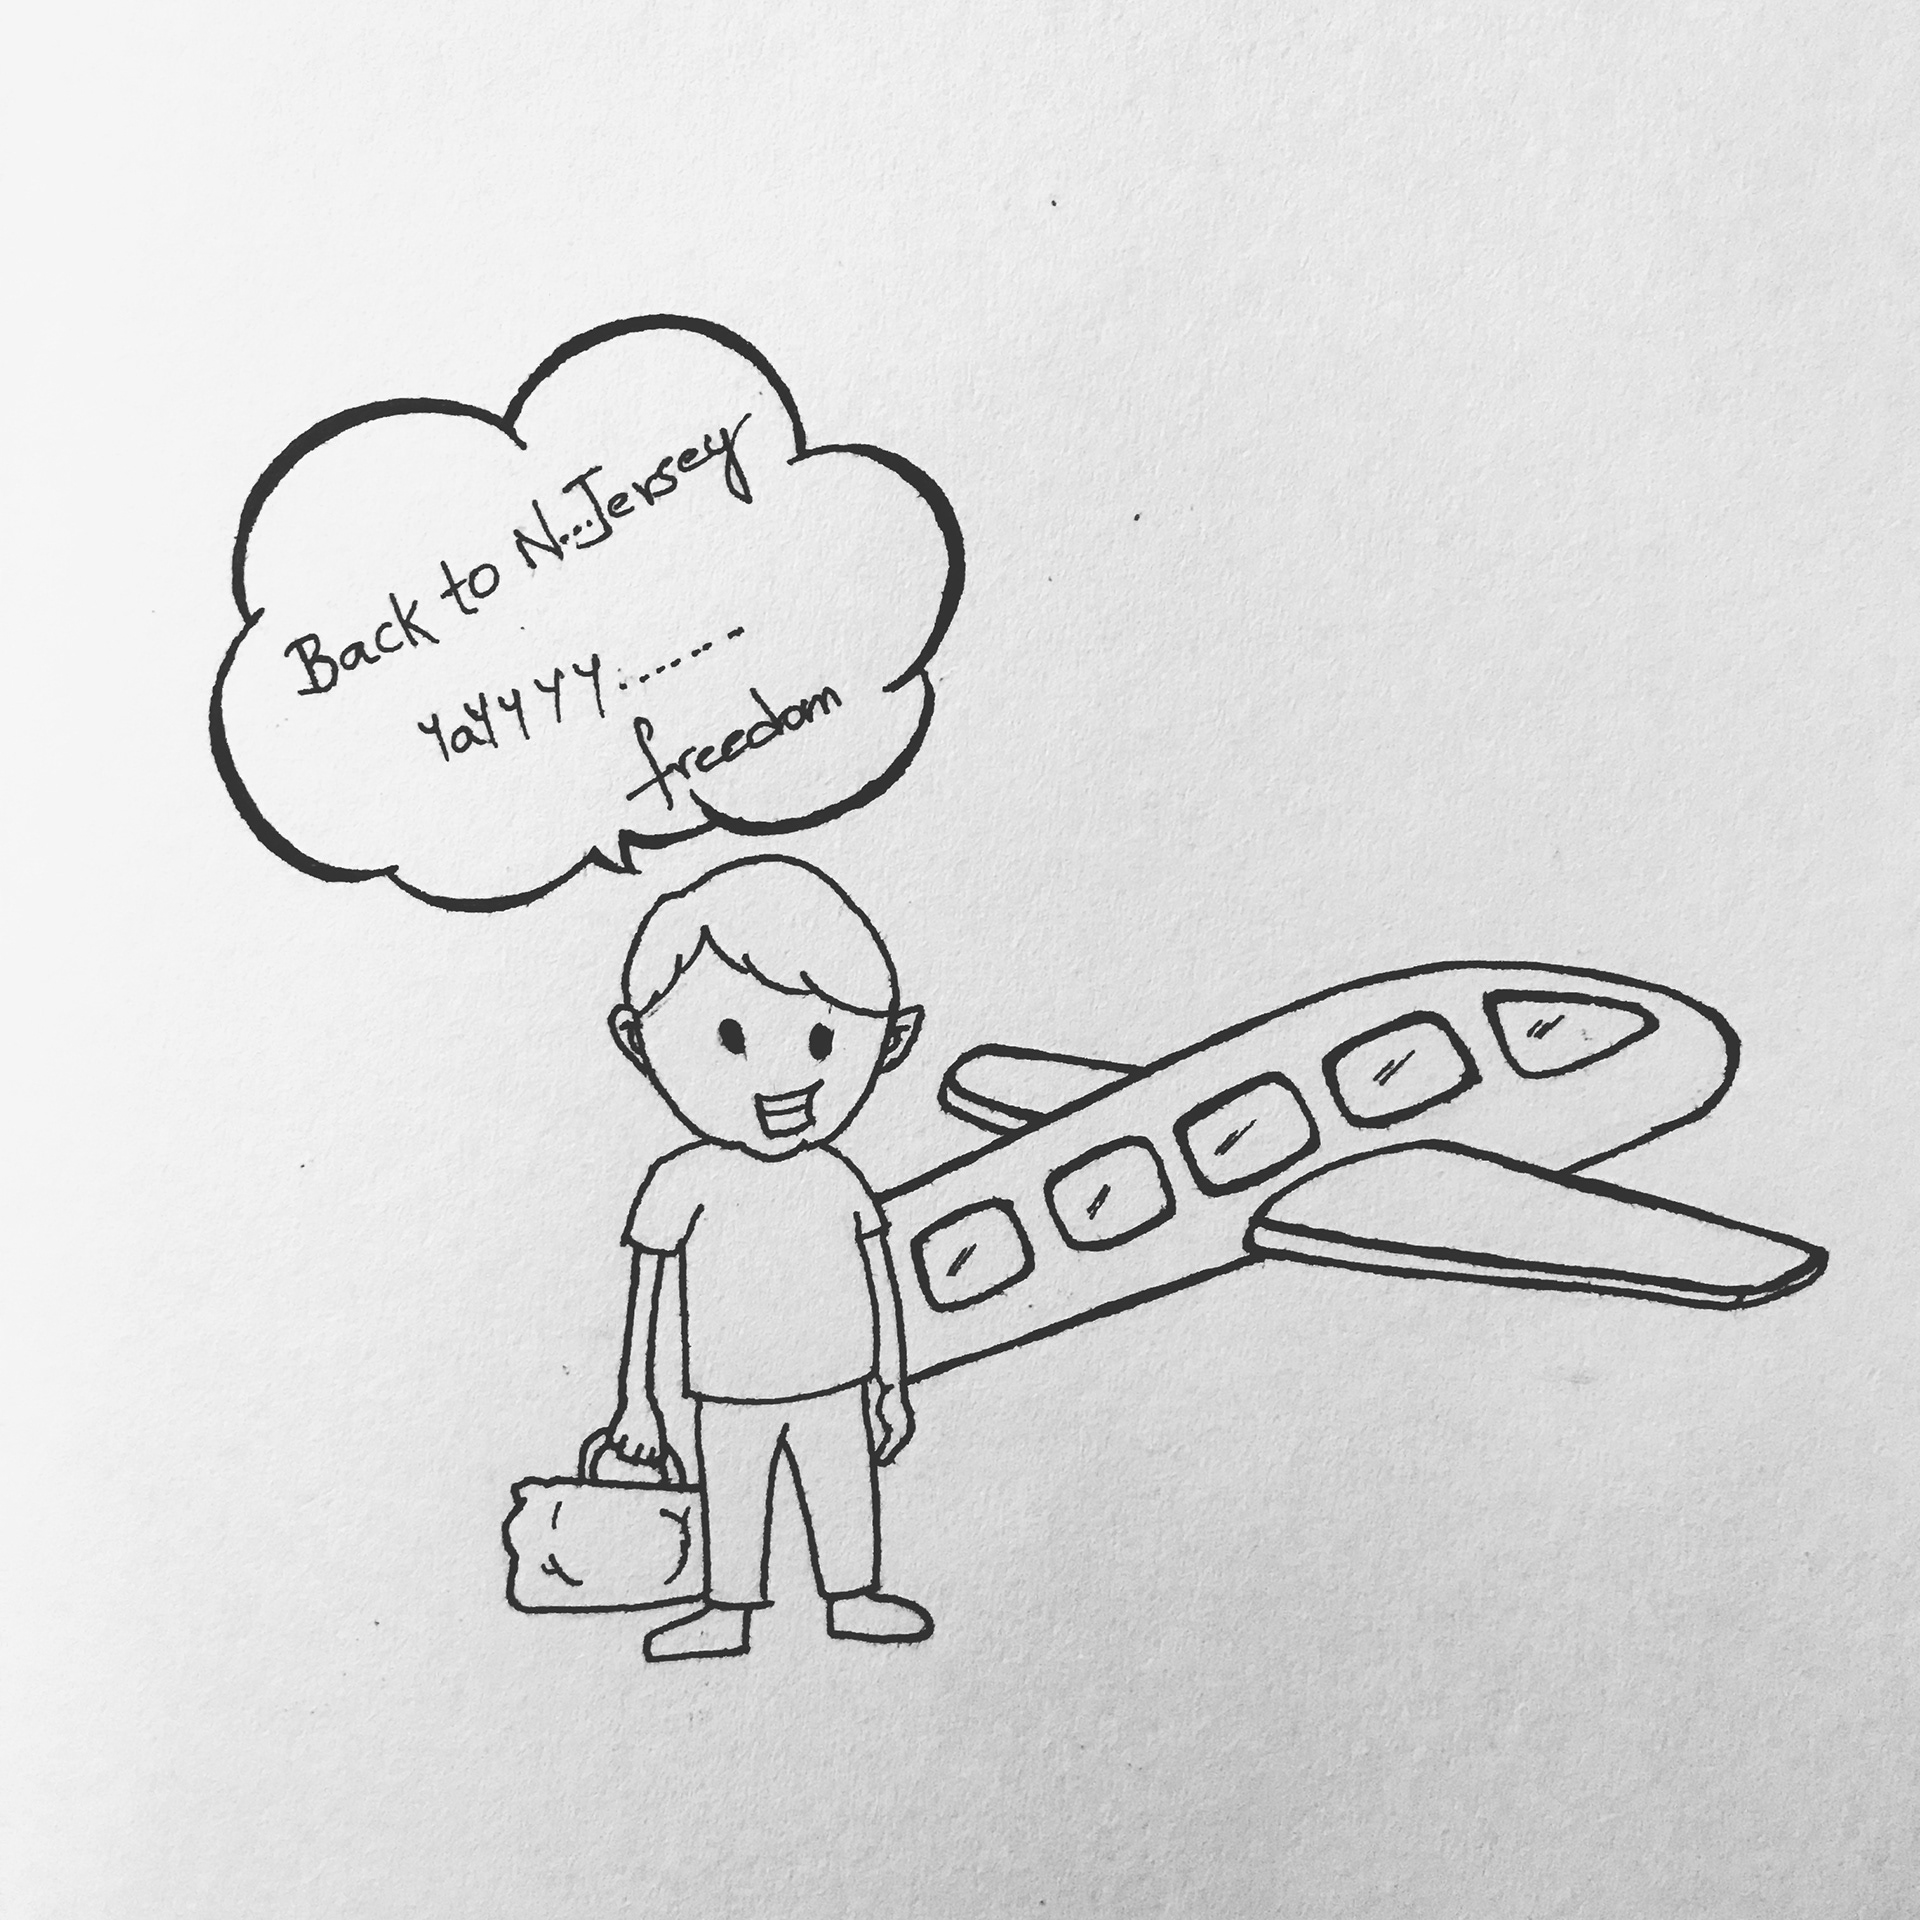 Back to N.Jersey
Yayyyy.......
freedom